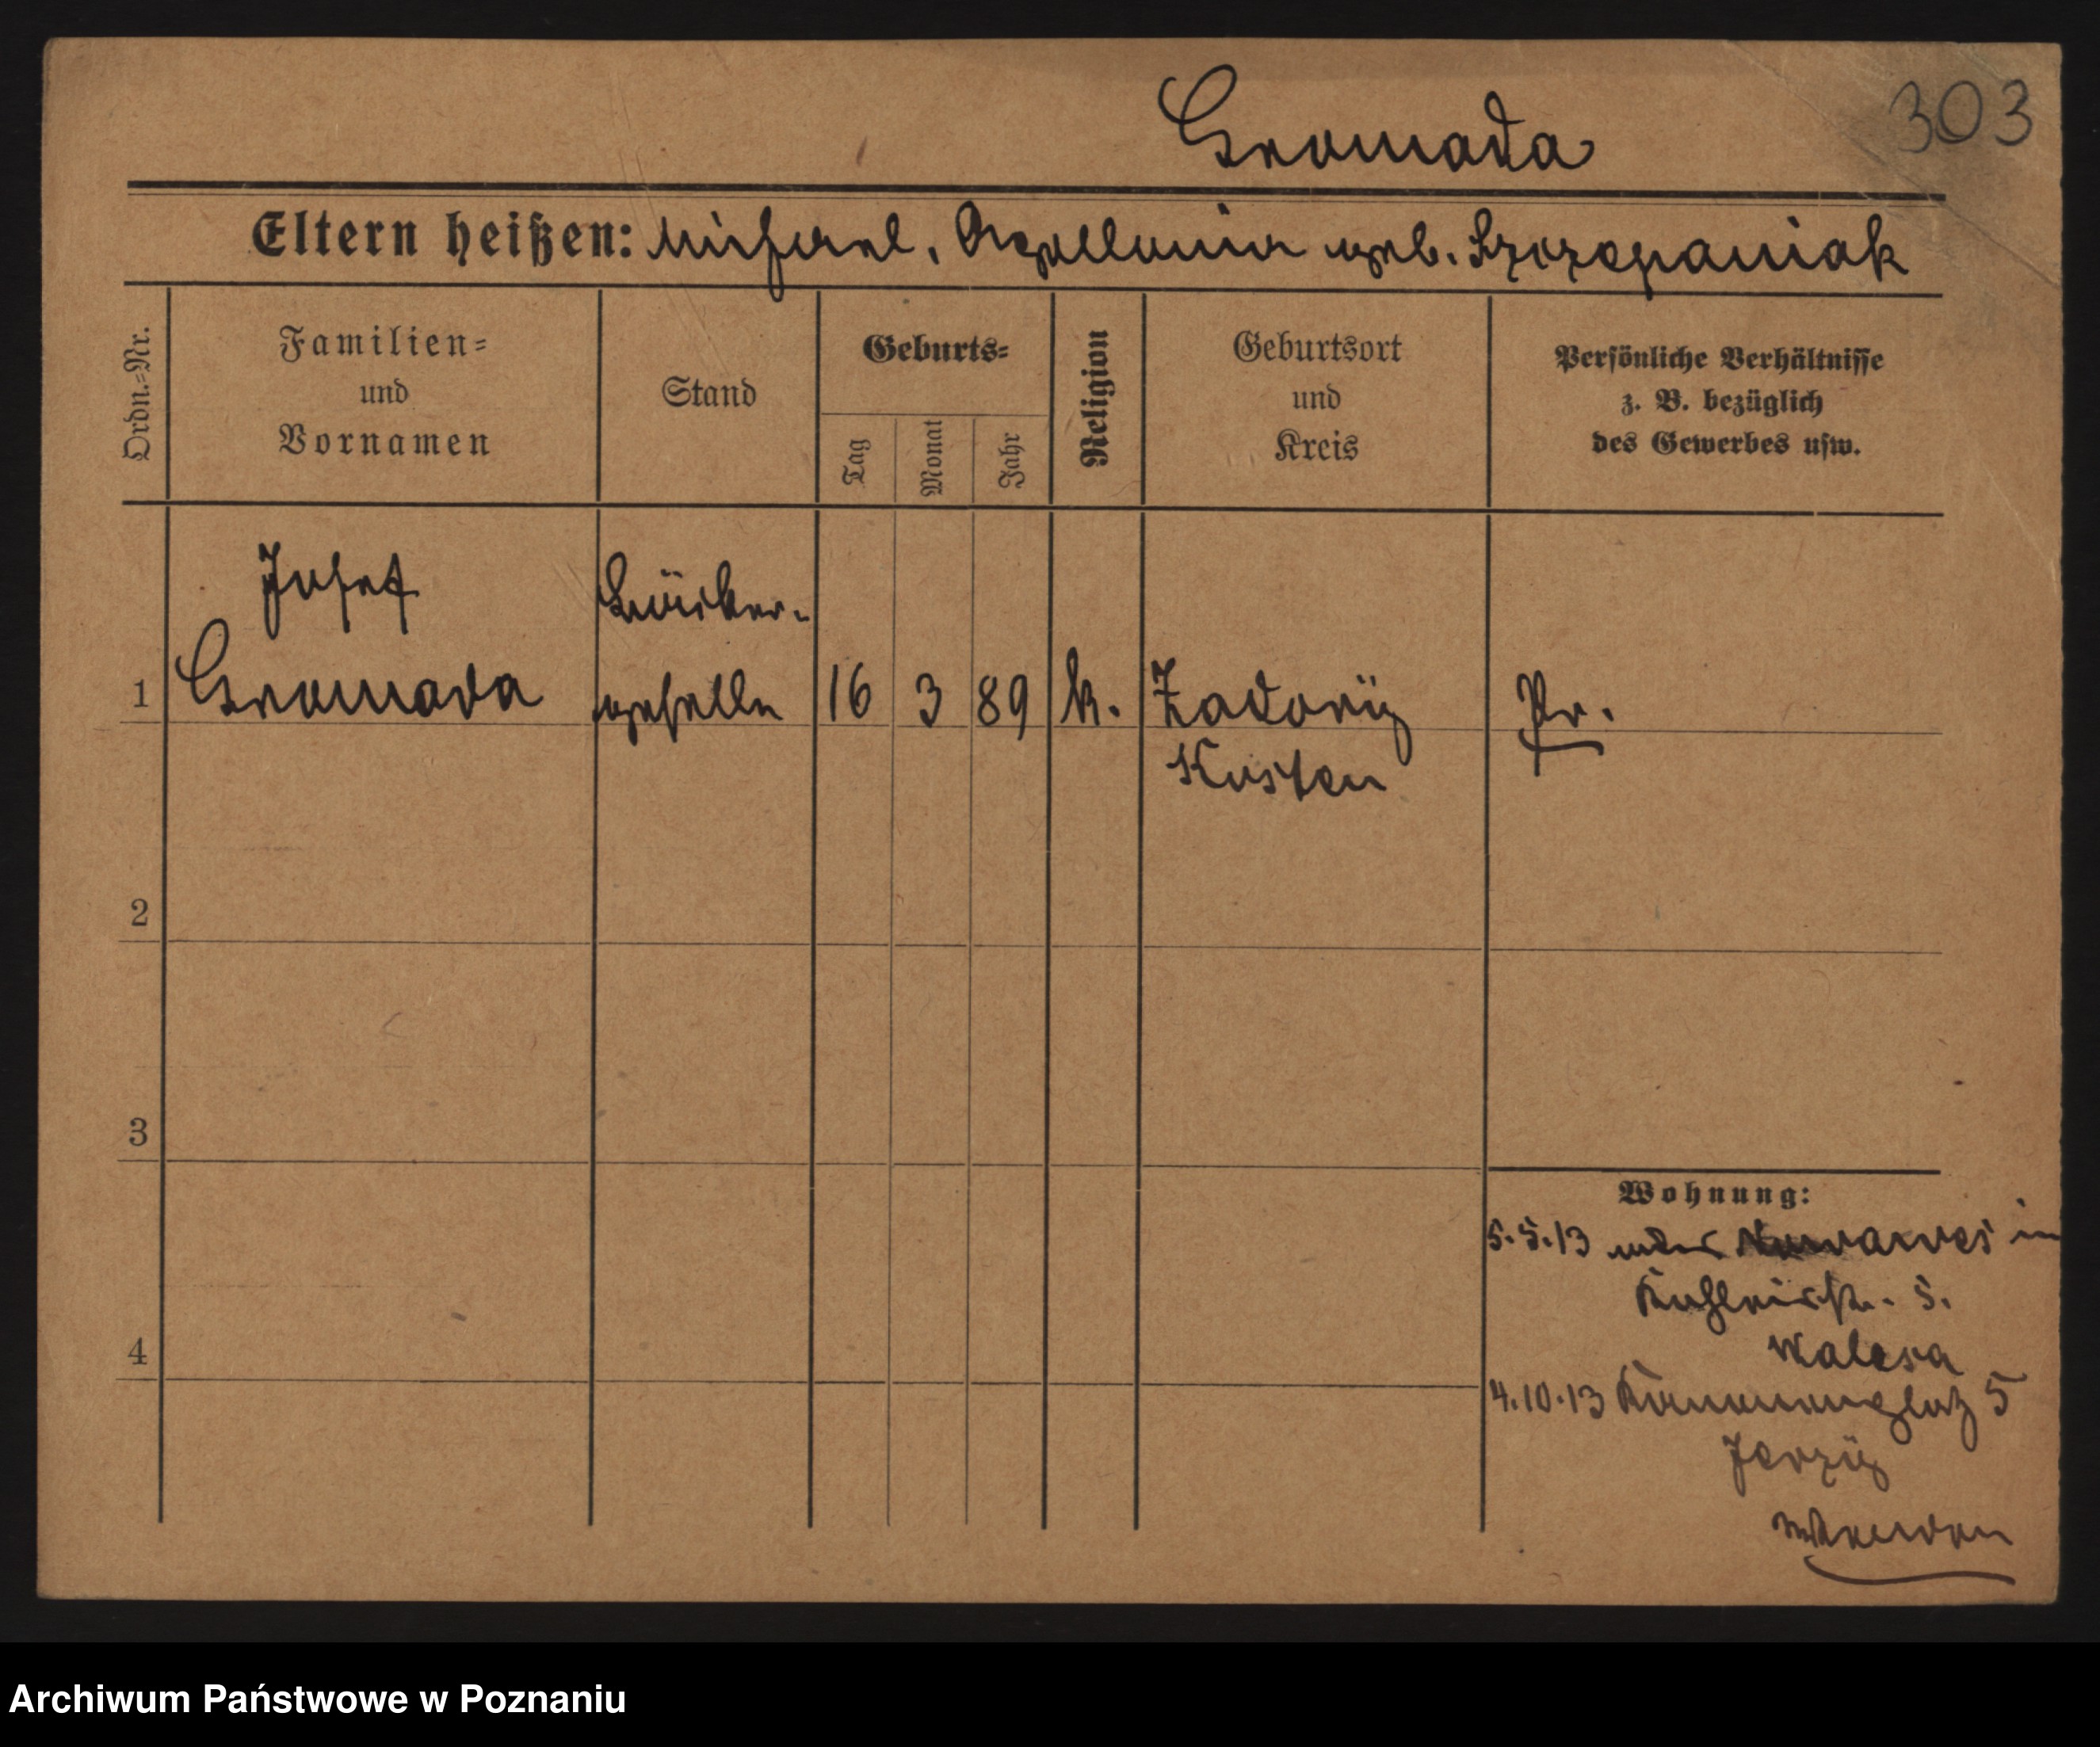 Gromada
303
Eltern heißen: Michael, Apollonia geb. Szczepaniak
Ordn.=Nr.
Familien=
und
Vornamen
Stand
Geburts=
Tag
Monat
Jahr
Religion
Geburtsort
und
Kreis
Persönliche Verhältnisse
z. B. bezüglich
des Gewerbes usw.
Josef
Bäcker-
1 Gromada geselle 16 3 89 k. Zadory Pr.
Kosten
2
3
Wohnung:
5.5.13 in
5.
4
4.10.13 5
Jerzy
Archiwum Państwowe w Poznaniu